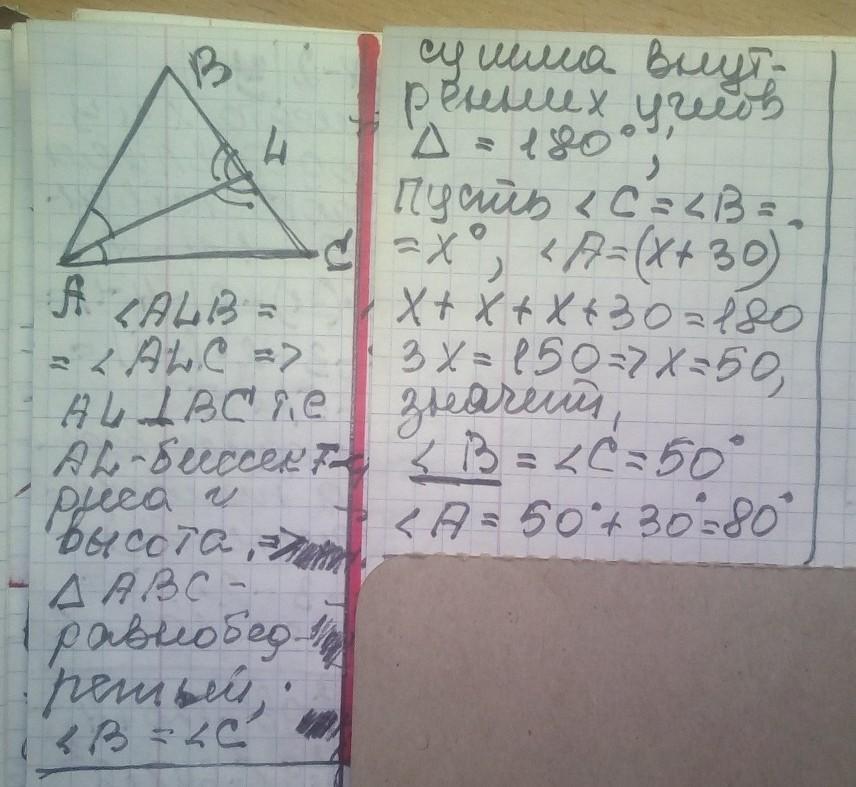 B
L
A
C
<ALB =
= <ALC =>
AL⊥BC т.е
AL-биссект-
риса и
высота, =>
Δ ABC -
равнобед-
ренный,
<B = <C
сумма внут-
ренних углов
Δ = 180°;
Пусть <C = <B =
= x°, <A=(x+30)°
x + x + x + 30 = 180
3x = 150 => x = 50,
значит,
< B = <C = 50°
<A = 50°+30°=80°